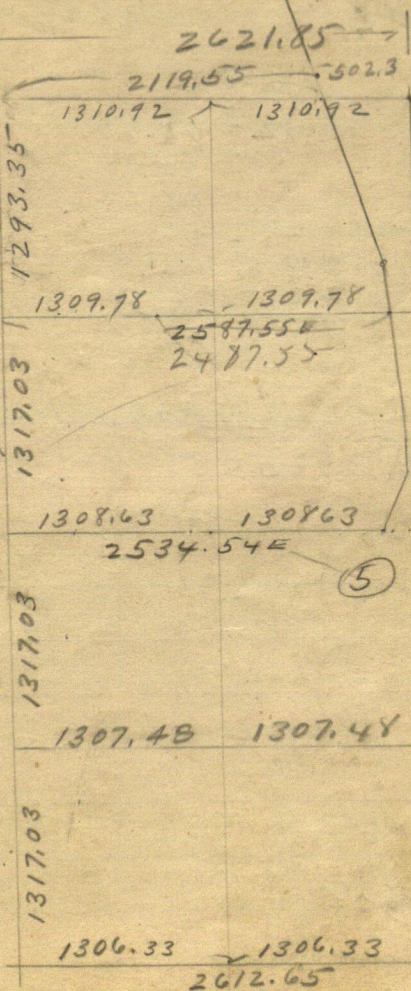 2621.85
2119.55 502.3
1310.92 1310.92
1293.35
1309.78 1309.78
2587.55E
2487.55
1317.03
1308.63 130863
2534.54E
5
1317.03
1307.48 1307.48
1317.03
1306.33 1306.33
2612.65